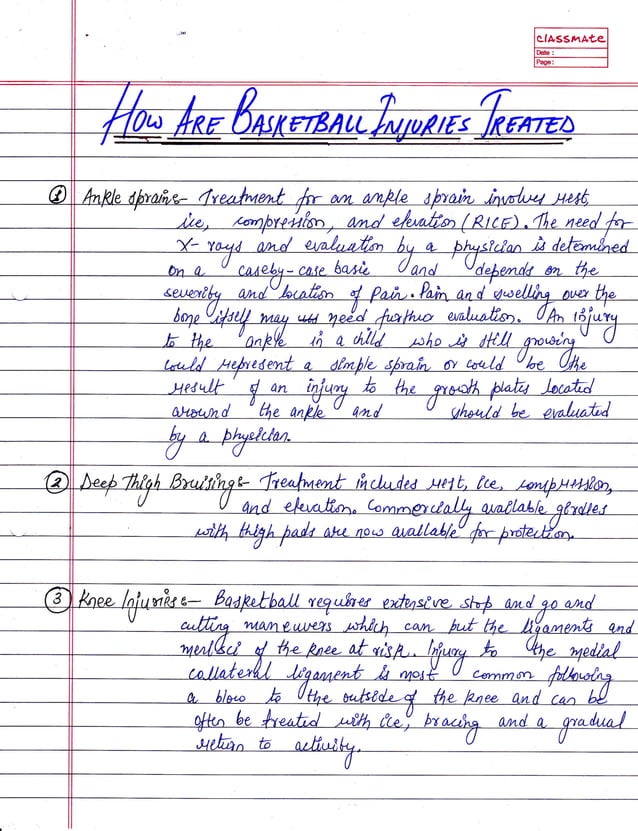 classmate
Date :
Page :
HOW ARE BASKETBALL INJURIES TREATED
1 Ankle sprain:- Treatment for an ankle sprain involves rest,
ice, compression, and elevation (RICE). The need for
X-rays and evaluation by a physician is determined
on a caseby-case basic and depends on the
severity and location of pain. Pain and swelling over the
bone itself may need further evaluation. An injury
to the ankle in a child who is still growing
could represent a simple sprain or could be the
result of an injury to the growth plates located
around the ankle and should be evaluated
by a physician.
2 Deep Thigh Bruising:- Treatment includes rest, ice, compression,
and elevation. Commercially available girdles
with thigh pads are now available for protection.
3 Knee Injuries:- Basketball requires extensive stop and go and
cutting maneuvers which can put the ligaments and
menisci of the knee at risk. Injury to the medial
collateral ligament is most common following
a blow to the outside of the knee and can be
often be treated with ice, bracing and a gradual
return to activity.